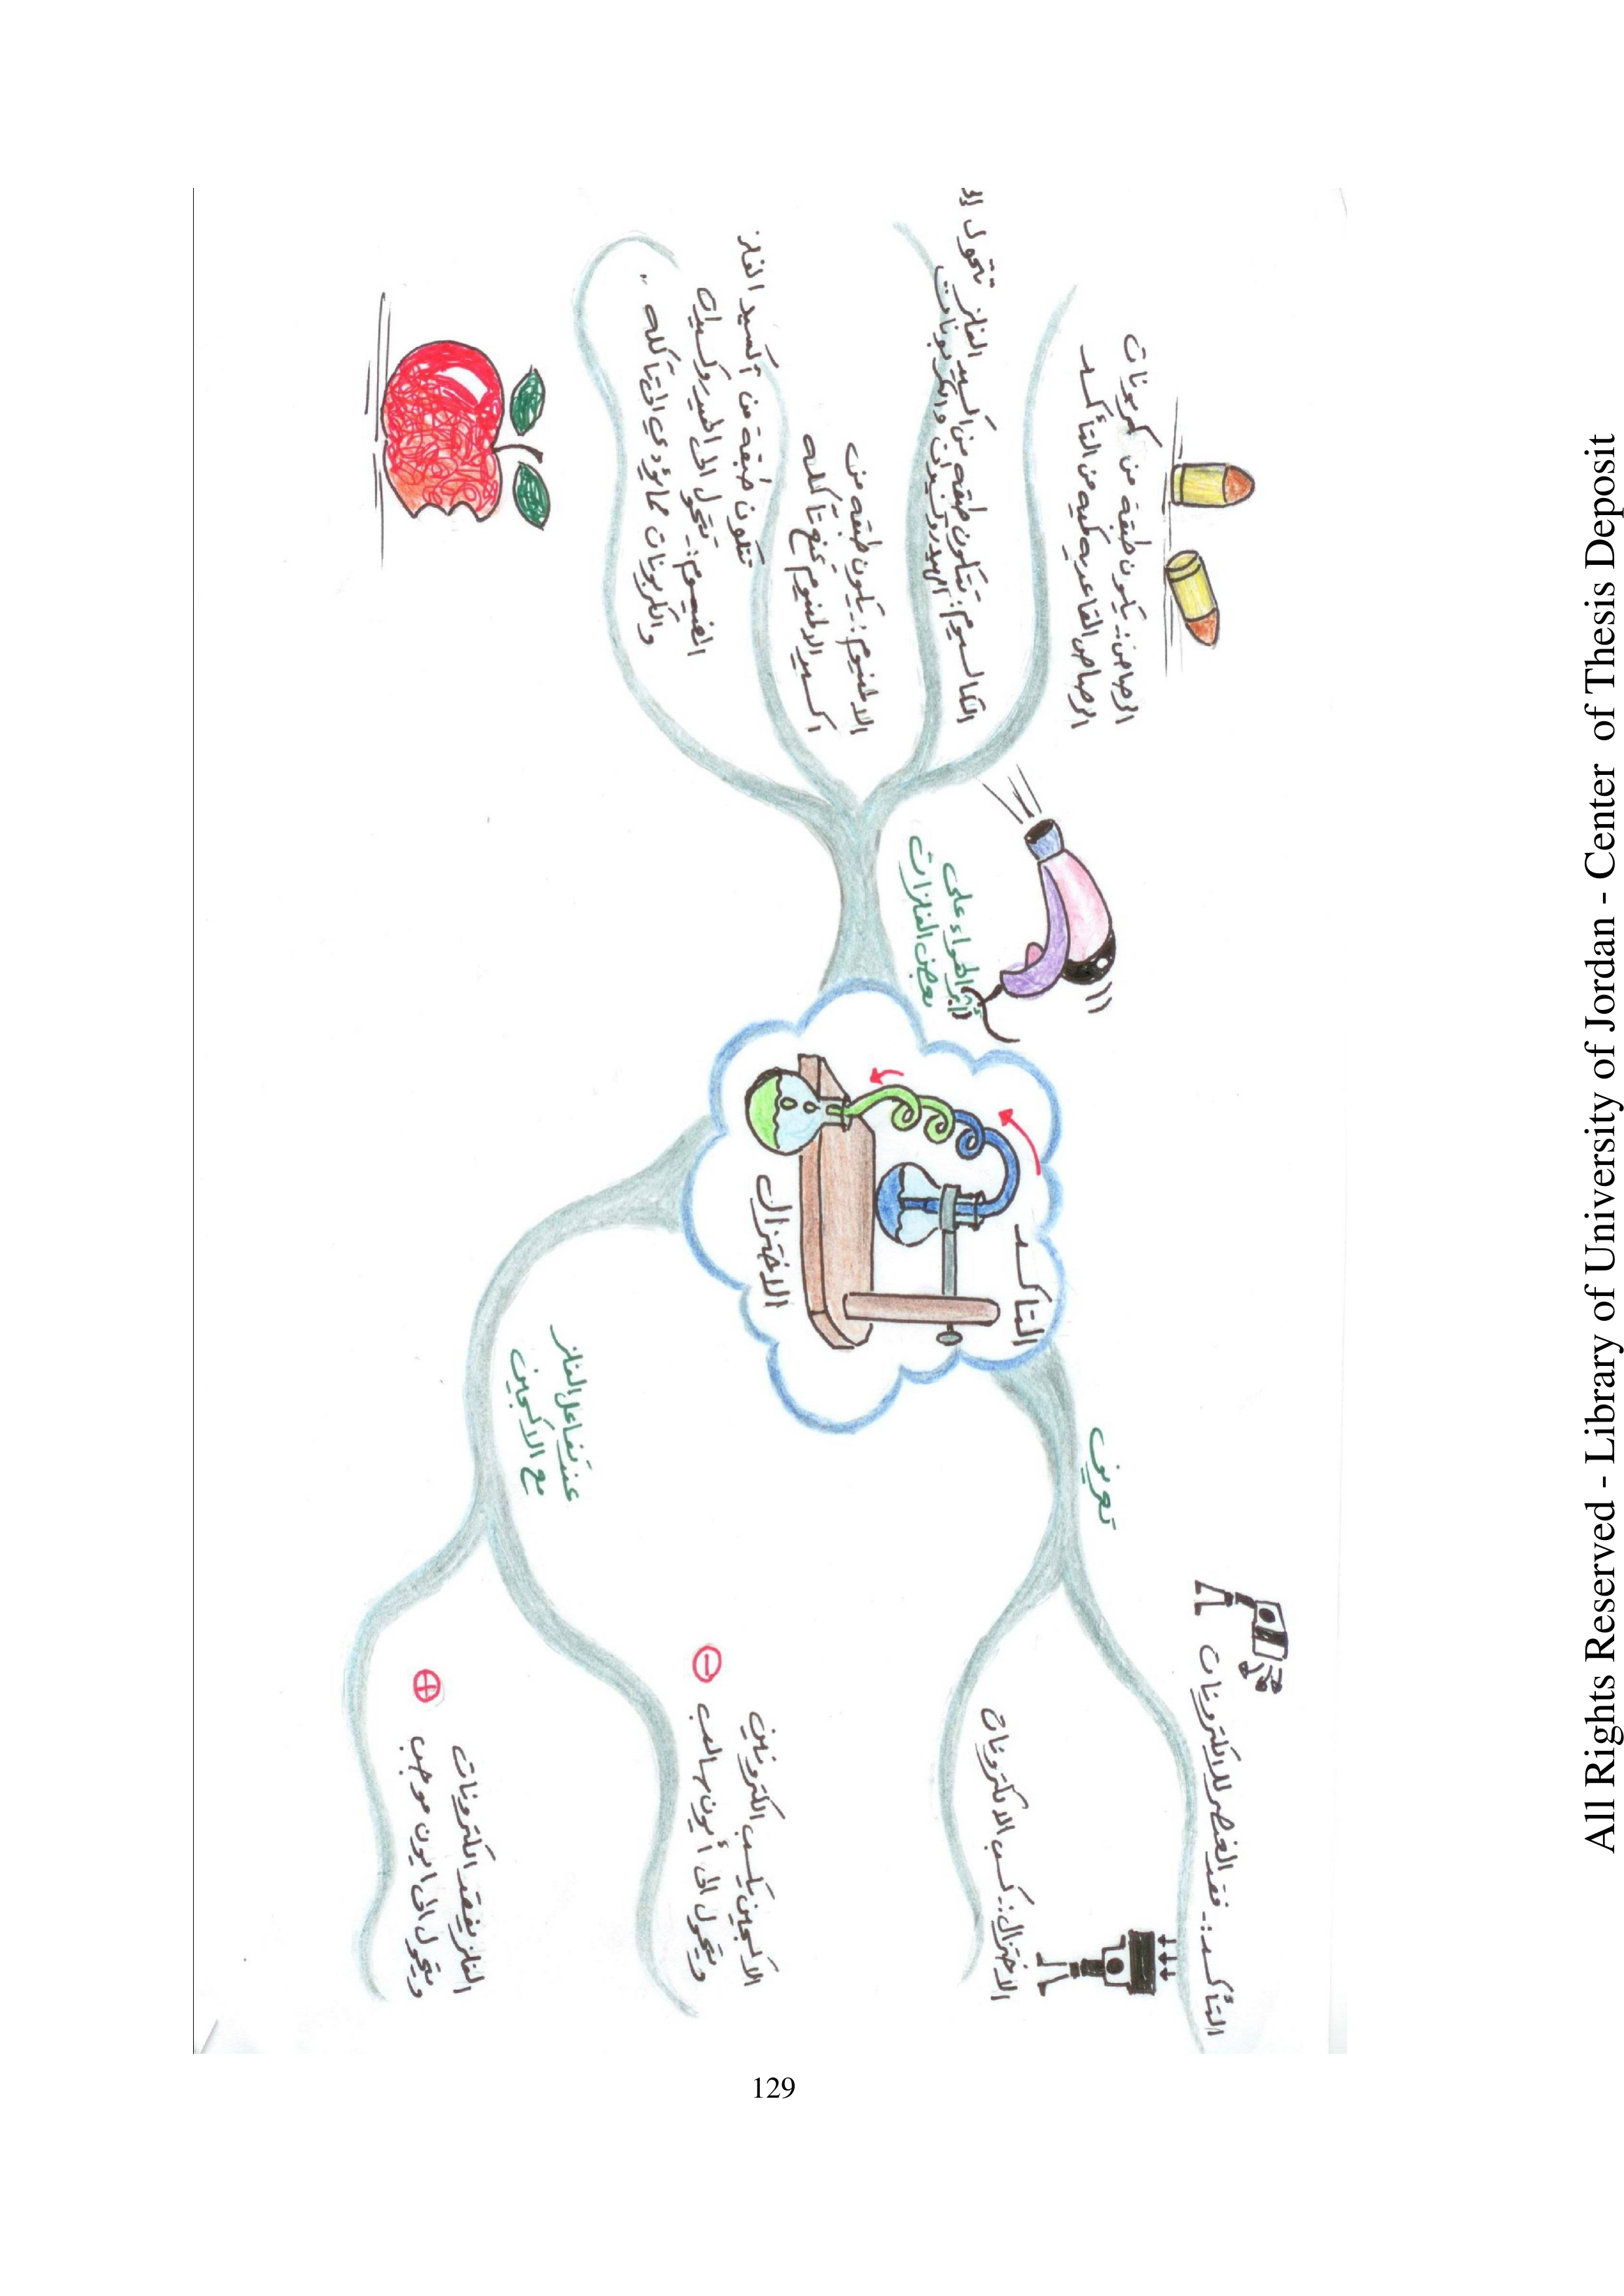 التأكسد
الاختزال
تعريف
التأكسد :- فقد العنصر للالكترونات
الاختزال :- كسب الالكترونات
عند تفاعل الفلز
مع الاكسجين
الاكسجين يكسب الكترونين
ويتحول الى أيون سالب
−
الفلز يفقد الكترونات
ويتحول الى ايون موجب
+
أثر الهواء على
بعض الفلزات
الرصاص :- يكون طبقة من كربونات
الرصاص القاعدية تحميه من التأكسد
الكالسيوم : تتكون طبقة من اكسيد الفلز تتحول إلى
الهيدروكسيدات والكربونات
الالمنيوم :- يكون طبقة من
اكسيد الالمنيوم تمنع تآكله
تتكون طبقة من أكسيد الفلز
المغنيسيوم :- تتحول الى الهيدروكسيدات
والكربونات مما يؤدي الى تآكله ..
129
All Rights Reserved - Library of University of Jordan - Center of Thesis Deposit